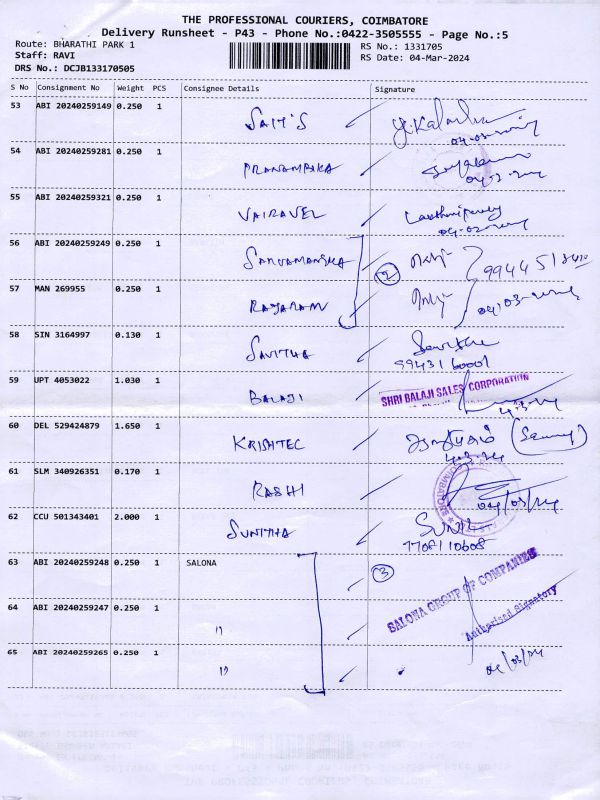 THE PROFESSIONAL COURIERS, COIMBATORE
Delivery Runsheet - P43 - Phone No.:0422-3505555 - Page No.:5
Route: BHARATHI PARK 1
RS No.: 1331705
Staff: RAVI
RS Date: 04-Mar-2024
DRS No.: DCJB133170505
S No Consignment No Weight PCS Consignee Details Signature
53 ABI 20240259149 0.250 1 SAIT'S
54 ABI 20240259281 0.250 1
55 ABI 20240259321 0.250 1 VAIRAVEL
56 ABI 20240259249 0.250 1 2
57 MAN 269955 0.250 1 RAJARAM
58 SIN 3164997 0.130 1 SAVITHA
59 UPT 4053022 1.030 1 BALAJI SHRI BALAJI SALES CORPORATION
4-3-24
60 DEL 529424879 1.650 1 KRISHTEC
4-3-24
61 SLM 340926351 0.170 1 RASHI
04/03/24
62 CCU 501343401 2.000 1 SUNITHA SUNIL
63 ABI 20240259248 0.250 1 SALONA 3
SALONA GROUP OF COMPANIES
64 ABI 20240259247 0.250 1 "
Authorised Signatory
65 ABI 20240259265 0.250 1 "
04/03/24